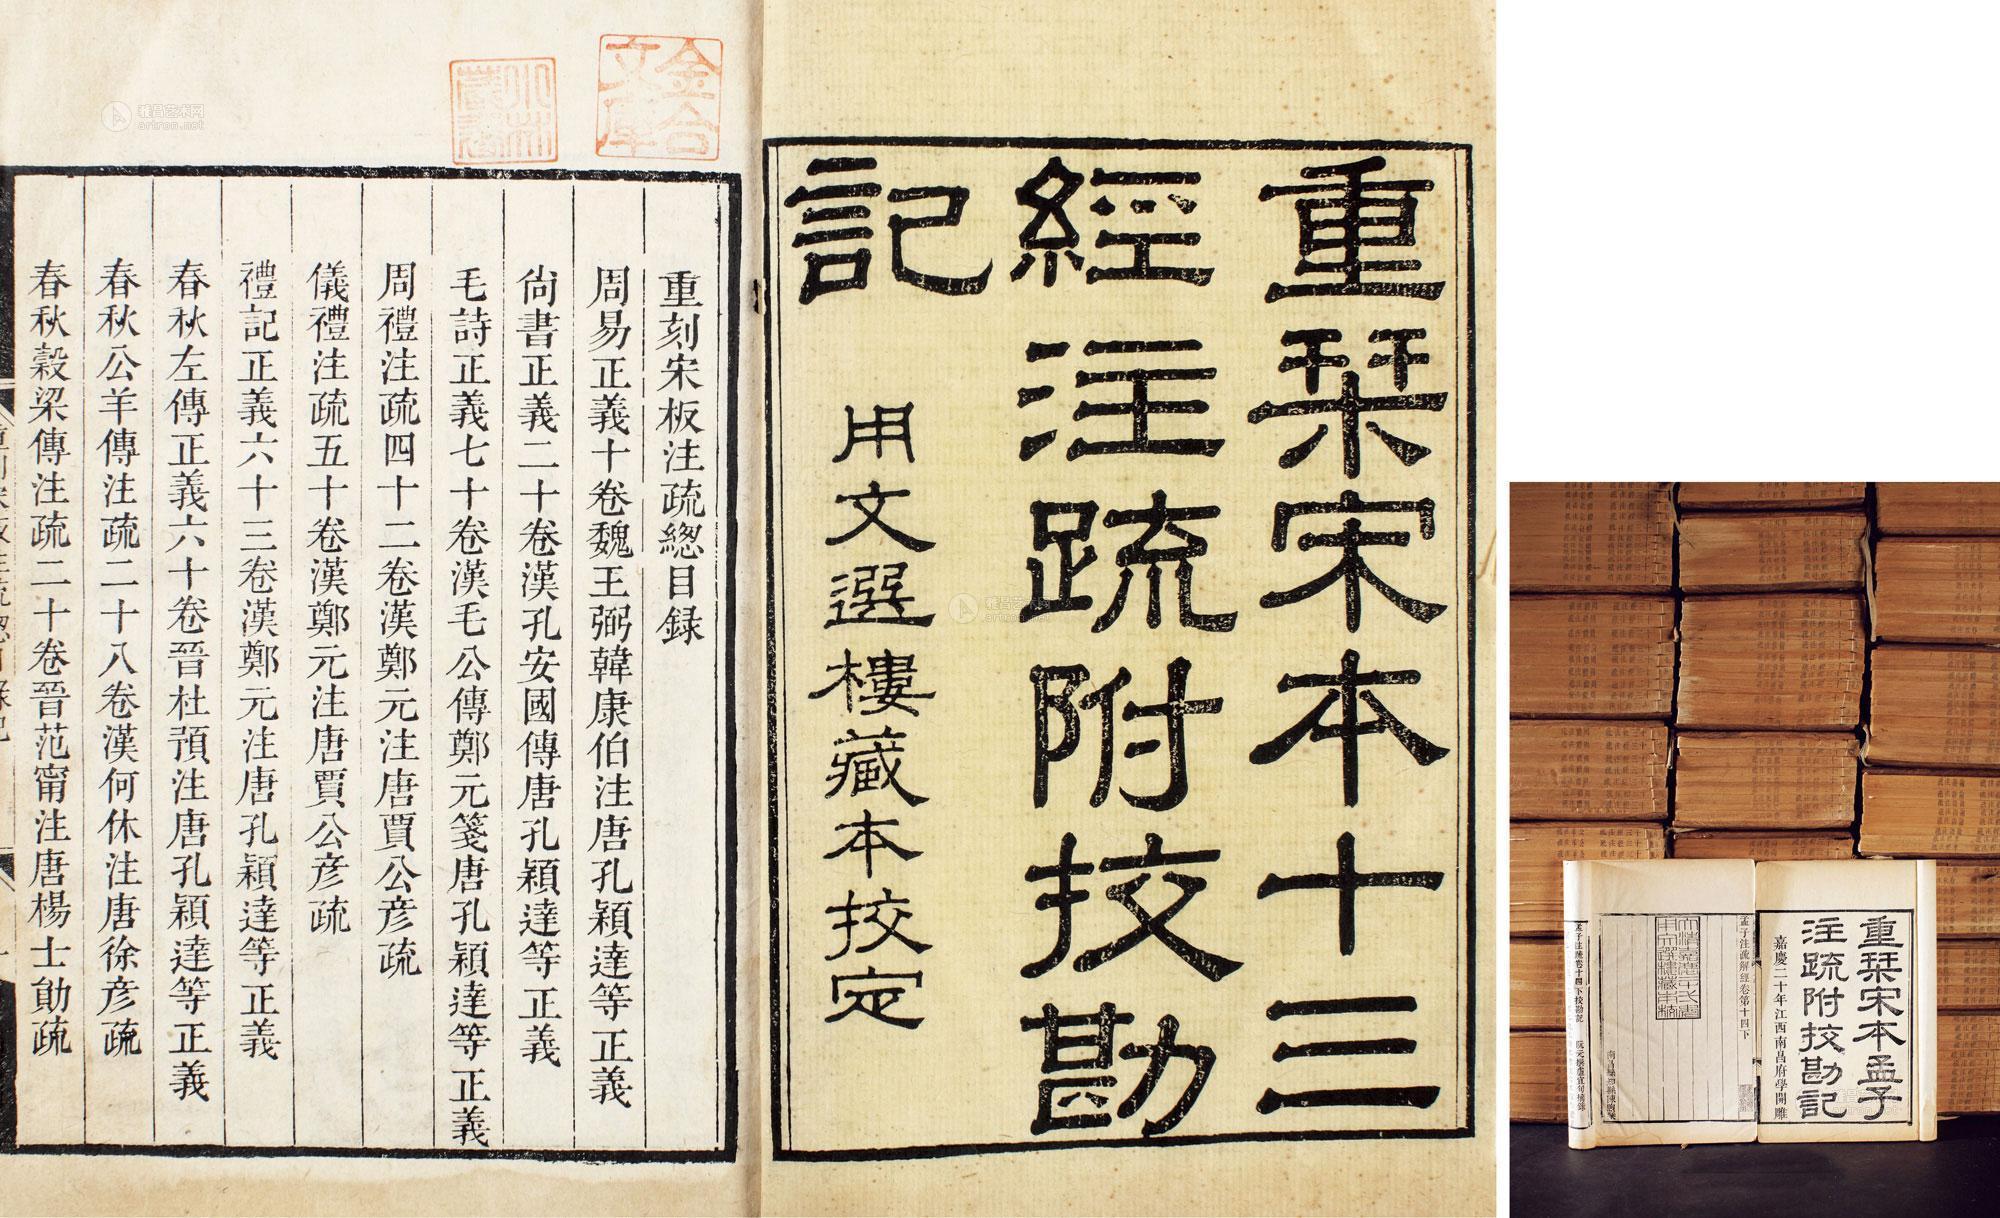 重栞宋本十三
經注疏附挍勘
記
用文選樓藏本挍定
金合
文庫
小林
藏書
重刻宋板注疏總目録
周易正義十卷魏王弼韓康伯注唐孔穎達等正義
尙書正義二十卷漢孔安國傳唐孔穎達等正義
毛詩正義七十卷漢毛公傳鄭元箋唐孔穎達等正義
周禮注疏四十二卷漢鄭元注唐賈公彦疏
儀禮注疏五十卷漢鄭元注唐賈公彦疏
禮記正義六十三卷漢鄭元注唐孔穎達等正義
春秋左傳正義六十卷晉杜預注唐孔穎達等正義
春秋公羊傳注疏二十八卷漢何休注唐徐彦疏
春秋穀梁傳注疏二十卷晉范甯注唐楊士勛疏
雅昌艺术网
artron.net
雅昌艺术网
artron.net
重栞宋本孟子
注疏附挍勘記
嘉慶二十年江西南昌府學開雕
孟子注疏解經卷第十四下